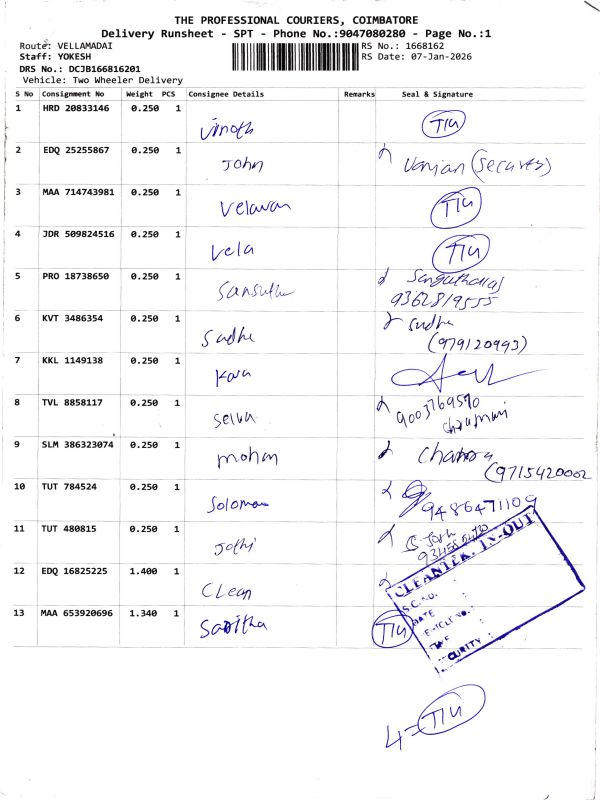 THE PROFESSIONAL COURIERS, COIMBATORE
Delivery Runsheet - SPT - Phone No.:9047080280 - Page No.:1
Route: VELLAMADAI
RS No.: 1668162
Staff: YOKESH
RS Date: 07-Jan-2026
DRS No.: DCJB166816201
Vehicle: Two Wheeler Delivery
S No Consignment No Weight PCS Consignee Details Remarks Seal & Signature
1 HRD 20833146 0.250 1 Vinoth
2 EDQ 25255867 0.250 1 John (Security)
3 MAA 714743981 0.250 1 Velavan
4 JDR 509824516 0.250 1 Vela
5 PRO 18738650 0.250 1
9362819555
6 KVT 3486354 0.250 1 Sudhe Sudhe
(979120993)
7 KKL 1149138 0.250 1 Kara
8 TVL 8858117 0.250 1 Selva 9003769570
9 SLM 386323074 0.250 1 mohan
(9715420002
10 TUT 784524 0.250 1 Solomon 9486471109
11 TUT 480815 0.250 1 Jothi
12 EDQ 16825225 1.400 1 CLean
CLEANTEK. IN-OUT
S.C.NO. :
DATE :
VEHICLE NO. :
TIME :
SECURITY :
13 MAA 653920696 1.340 1 Sabitha